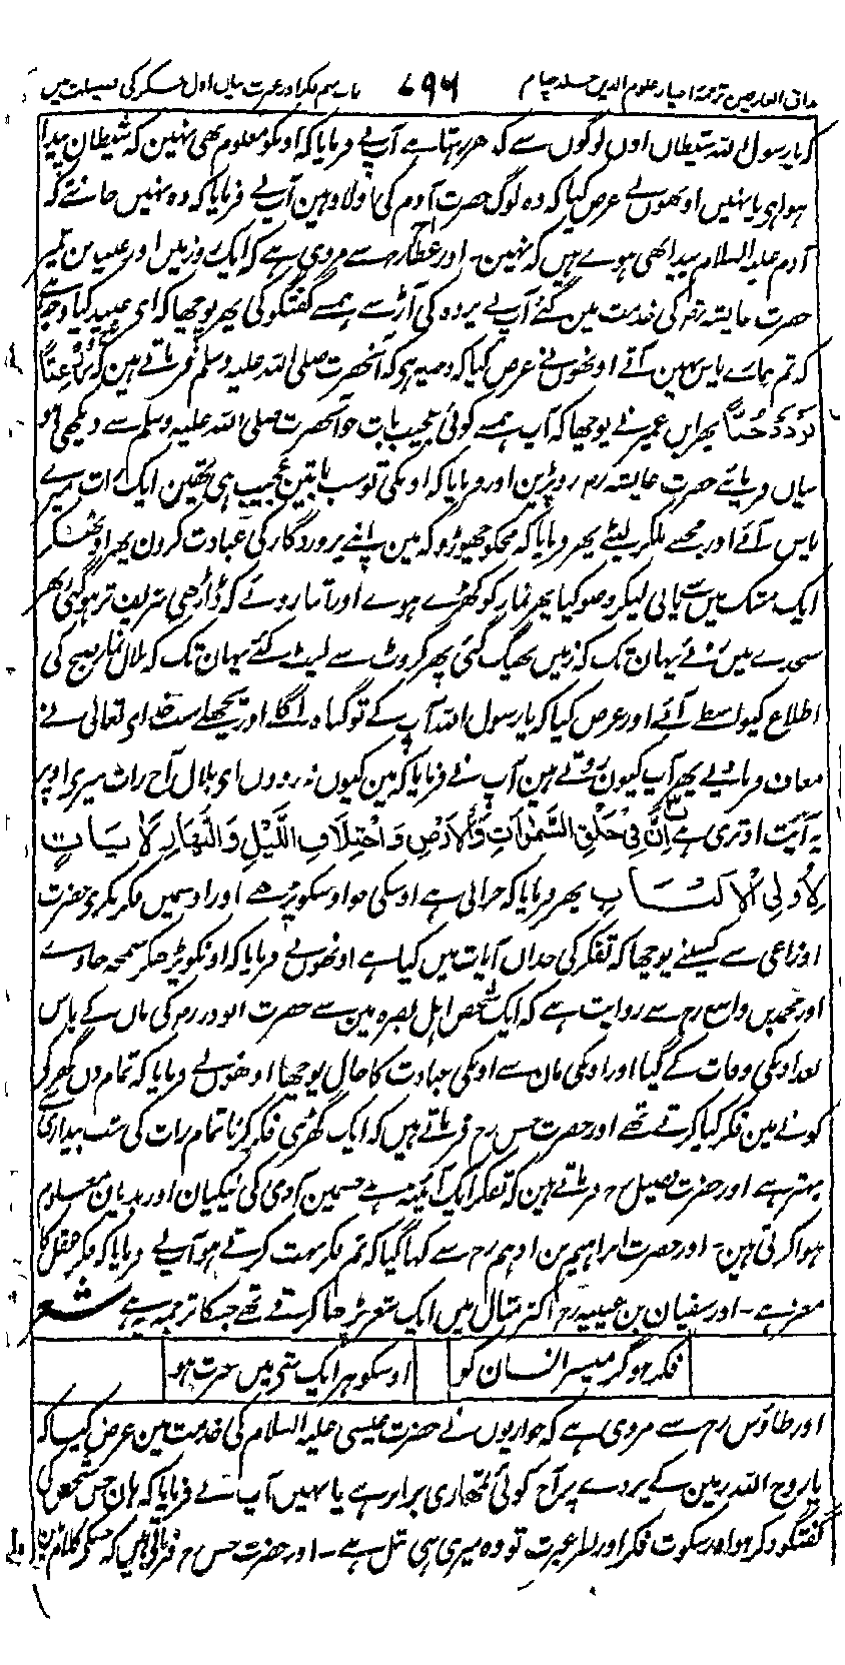 مذاق العارفین ترجمہ احیاء علوم الدین جلد چہارم ۶۹۶ باب نہم فکر اور عبرت بیان اول تفکر کی فضیلت میں
کہ یا رسول اللہ شیطان اون لوگوں سے کدھر رہتا ہے آپ نے فرمایا کہ اونکو معلوم بھی نہین کہ شیطان پیدا
ہوا ہی یا نہیں اونھوں نے عرض کیا کہ وہ لوگ حضرت آدم کی اولاد ہین آپ نے فرمایا کہ وہ نہیں جانتے کہ
آدم علیہ السلام پیدا بھی ہوے ہیں کہ نہین۔ اور عطار رح سے مروی ہے کہ ایک روز میں اور عبید بن عمیر
حضرت عایشہ رضہ کی خدمت مین گئے آپ نے پردہ کی آڑ سے ہمسے گفتگو کی پھر پوچھا کہ ای عبید کیا وجہ ہے
کہ تم ہمارے پاس نہین آتے اونھوں نے عرض کیا کہ وجہ یہ ہی کہ آنحضرت صلی اللہ علیہ وسلم فرماتے ہین کہ زُرْغِبًّا
تَزْدَدْ حُبًّا پھر ابن عمیر نے پوچھا کہ آپ ہمسے کوئی عجیب بات جو آنحضرت صلی اللہ علیہ وسلم سے دیکھی ہو
بیان فرمائیے حضرت عایشہ رضہ رو پڑین اور فرمایا کہ اونکی تو سب باتین عجیب ہی تھین ایک رات میرے
پاس آئے اور مجھسے ملکر لیٹے پھر فرمایا کہ مجکو چھوڑو کہ مین اپنے پروردگار کی عبادت کرون پھر اوٹھکر
ایک مشک میں سے پانی لیکر وضو کیا پھر نماز کو کھڑے ہوے اور اتنا روئے کہ ڈاڑھی شریف تر ہوگئی پھر
سجدے میں روئے یہان تک کہ زمیں بھیگ گئی پھر کروٹ سے لیٹ گئے یہان تک کہ بلال نماز صبح کی
اطلاع کیواسطے آئے اور عرض کیا کہ یا رسول اللہ آپ کے تو گناہ اگلے اور پچھلے سب خدای تعالی نے
معاف فرمائے پھر آپ کیون روتے ہین آپ نے فرمایا کہ مین کیوں نہ روؤں ای بلال آج رات میری اوپر
یہ آیت اوتری ہے إِنَّ فِي خَلْقِ السَّمٰوَاتِ وَالْأَرْضِ وَاخْتِلَافِ اللَّيْلِ وَالنَّهَارِ لَآيَاتٍ
لِأُولِي الْأَلْبَابِ پھر فرمایا کہ خرابی ہے اوسکی جو اوسکو پڑھے اور اوسمیں فکر نکرے حضرت
اوزاعی سے کسینے پوچھا کہ تفکر کی حد ان آیات میں کیا ہے اونھوں نے فرمایا کہ اونکو پڑھکر سمجھ جاوے
اور محمد بن واسع رح سے روایت ہے کہ ایک شخص اہل بصرہ مین سے حضرت ابوذر رضہ کی ماں کے پاس
بعد اونکی وفات کے گیا اور اونکی مان سے اونکی عبادت کا حال پوچھا اونھوں نے فرمایا کہ تمام دن گھر کے
کونے مین فکر کیا کرتے تھے اور حضرت حسن رح فرماتے ہیں کہ ایک گھڑی فکر کرنا تمام رات کی شب بیداری سے
بہتر ہے اور حضرت فضیل رح فرماتے ہین کہ تفکر ایک آئینہ ہے جسمین آدمی کی نیکیان اور بدیان معلوم
ہوا کرتی ہین۔ اور حضرت ابراہیم بن ادہم رح سے کہا گیا کہ تم فکر بہت کرتے ہو آپ نے فرمایا کہ فکر عقل کا
مغز ہے۔ اور سفیان بن عیینہ رح اکثر مثال میں ایک شعر پڑھا کرتے تھے جسکا ترجمہ یہ ہے شعر
فکر ہو گر میسر انسان کو اوسکو ہر ایک شی میں عبرت ہو
اور طاؤس رح سے مروی ہے کہ حواریوں نے حضرت عیسی علیہ السلام کی خدمت مین عرض کیا کہ
یا روح اللہ زمین کے پردے پر آج کوئی تمھاری برابر ہے یا نہیں آپ نے فرمایا کہ ہان جس شخص کی
گفتگو ذکر ہو اور سکوت فکر اور نظر عبرت تو وہ میری ہی مثل ہے۔ اور حضرت حسن رح فرماتے ہیں کہ جسکے کلام مین